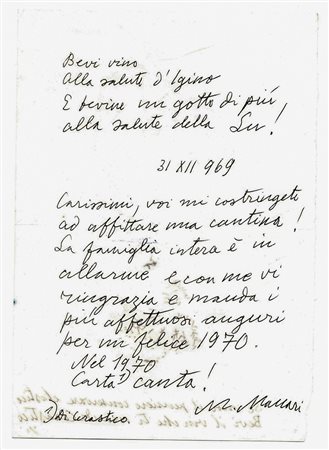 Bevi vino
alla salute d'Igino
E bevine un gotto di più,
alla salute della Lu!
31 XII 969
Carissimi, voi mi costringete
ad affittare una cantina!
La famiglia intera è in
allarme e con me vi
ringrazia e manda i
più affettuosi auguri
per un felice 1970.
Nel 1970
Carta 1) canta!
1) Di
M. Maccari